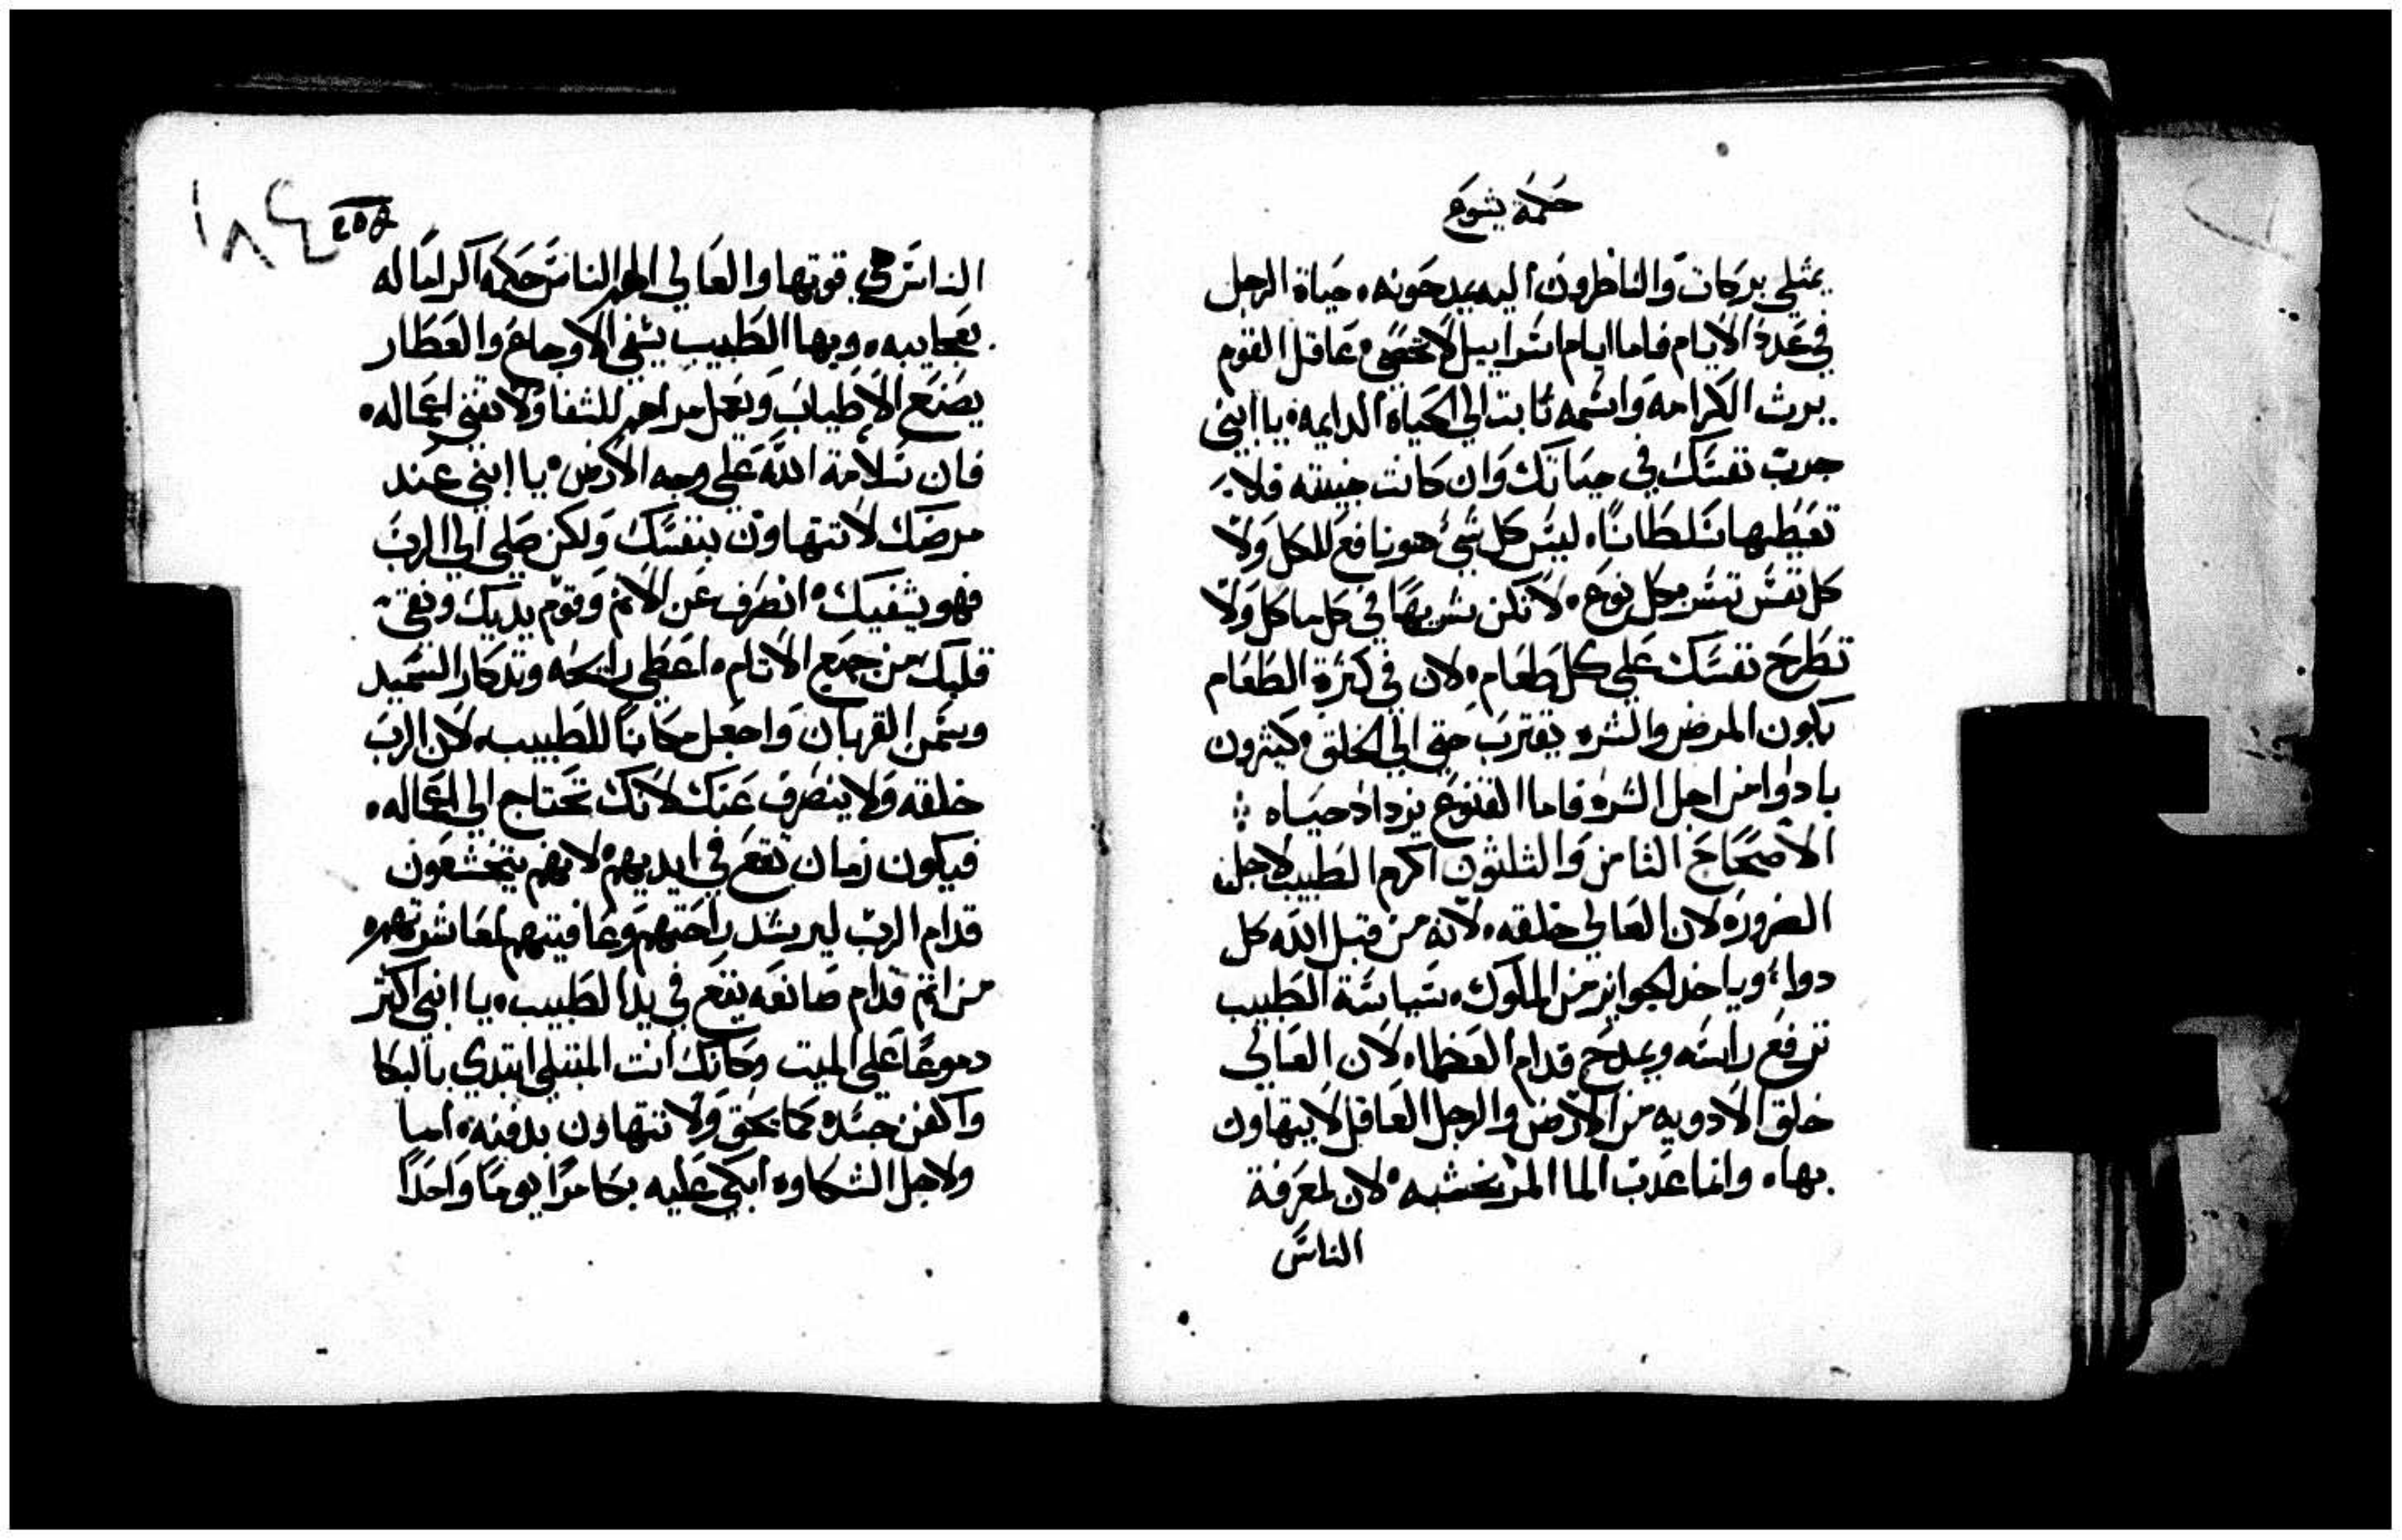 حكمة يشوع
يمتلي بركات والناظرون اليه يمدحونه. حياة الرجل
في عدة الايام فاما ايام اسراييل لا تحصى. عاقل القوم
يرث الكرامه واسمه ثابت الي الحياة الدايمه. يا ابني
جرب نفسك في حياتك وان كانت خبيثه فلا
تعطيها سلطانا. ليس كل شي هو نافع للكل ولا
كل نفس تسر بكل نوع. لا تكن شرها في كل ماكل ولا
تطرح نفسك علي كل طعام. لان في كثرة الطعام
يكون المرض والشره يقترب حتي الي الخلق. كثيرون
بادوا من اجل الشره فاما القنوع يزداد حياه
الاصحاح الثامن والثلثون اكرم الطبيب لاجل
الضروره لان العالي خلقه. لانه من قبل الله كل
دواء وياخد الجوايز من الملوك. سياسة الطبيب
ترفع راسه ويمدح قدام العظما. لان العالي
خلق الادويه من الارض والرجل العاقل لا يتهاون
بها. وانما عدب الما المر بخشبه. لان لمعرفة
الناس
١٨٤
الناس هي قوتها والعالي الهم الناس حكمه اكراما له
بعجايبه. وبها الطبيب يشفي الاوجاع والعطار
يصنع الاطياب ويعمل مراهم للشفا ولا تفنى اعماله.
فان سلامة الله علي وجه الارض. يا ابني عند
مرضك لا تتهاون بنفسك ولكن صلي الي الرب
فهو يشفيك. انصرف عن الاثم وقوم يديك ونقي
قلبك من جميع الاتام. اعطي رايحه وتدكار السميد
وسمن القربان واجعل مكانا للطبيب. لان الرب
خلقه ولا ينصرف عنك لانك تحتاج الي اعماله.
فيكون زمان تقع في ايديهم لانهم يتخشعون
قدام الرب ليرشد راحتهم وعافيتهم لمعاشرتهم.
من اثم قدام صانعه يقع في يد الطبيب. يا ابني اكثر
دموعا علي الميت وكانك انت المبتلي ابتدي بالبكا
واكفن جسده كما يحق ولا تتهاون بدفنه. اما
ولاجل الشكاوه ابكي عليه بكا مرا يوما واحدا